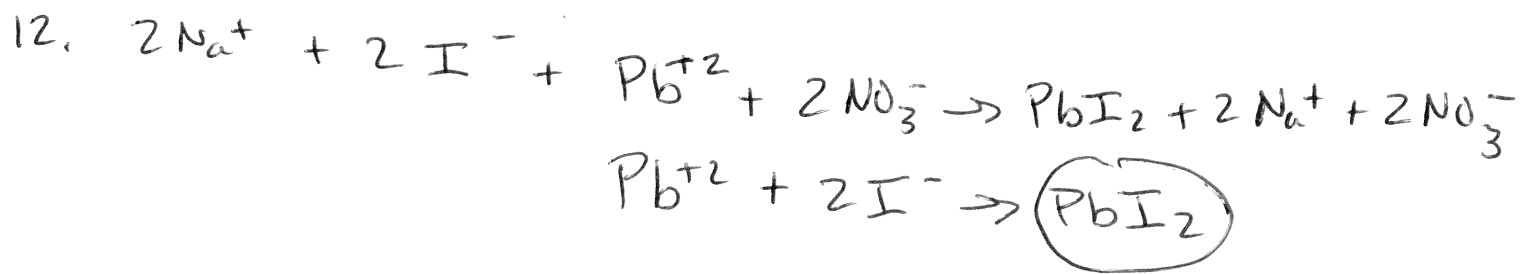 12. 2Na⁺ + 2I⁻ + Pb⁺² + 2NO₃⁻ → PbI₂ + 2Na⁺ + 2NO₃⁻
Pb⁺² + 2I⁻ → PbI₂